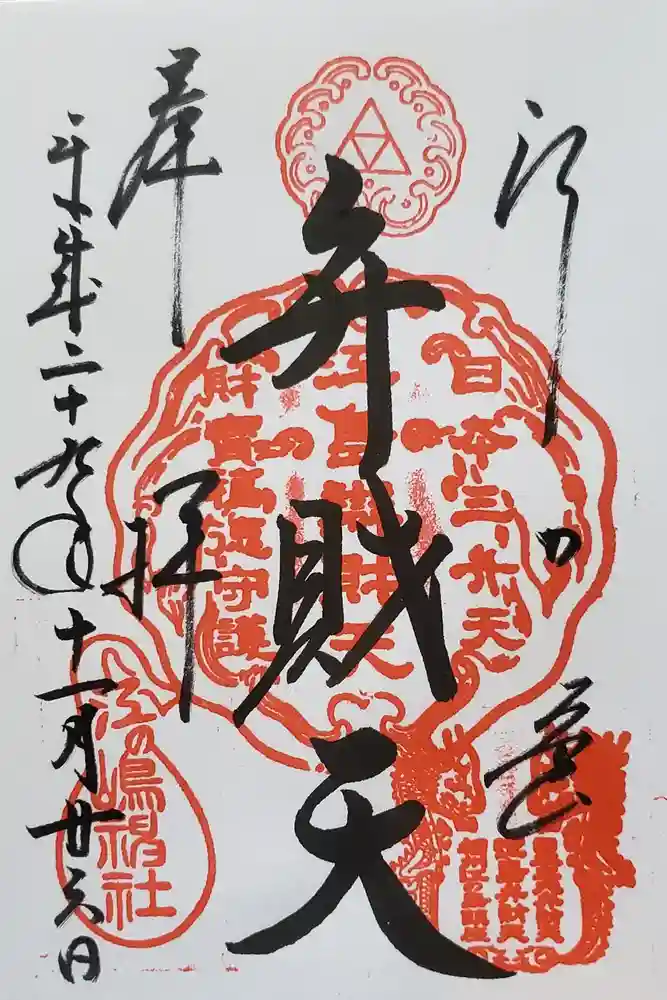 江の島
弁財天
奉拝
平成二十九年十一月廿六日
日本三弁天
江島辨財天
財寶福徳守護
江の嶋神社